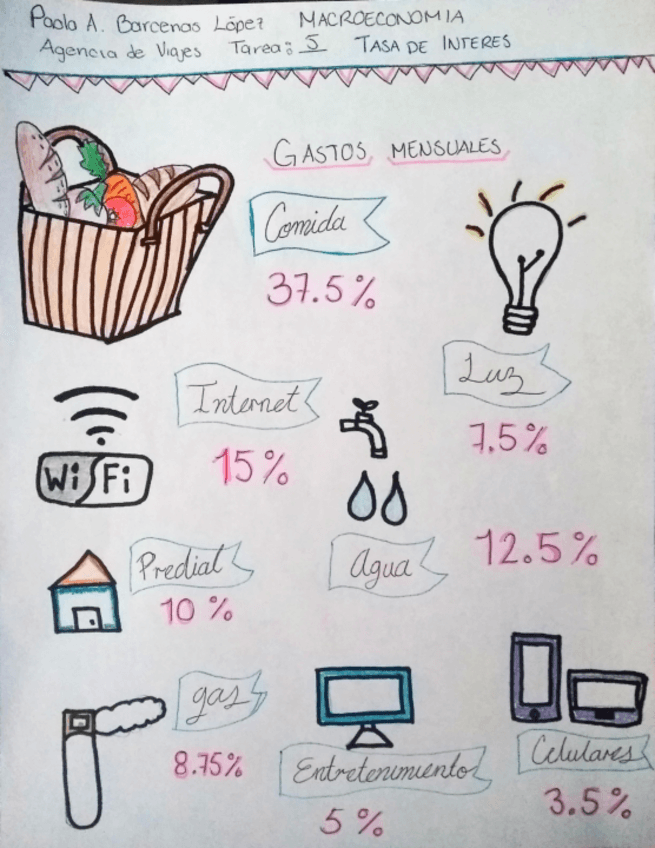 Paola A. Barcenas López MACROECONOMIA
Agencia de Viajes Tarea: 5 TASA DE INTERES
GASTOS MENSUALES
Comida
37.5%
Luz
7.5%
Internet
15%
Wi Fi
Agua
12.5%
Predial
10 %
gas
8.75%
Entretenimiento
5 %
Celulares
3.5%